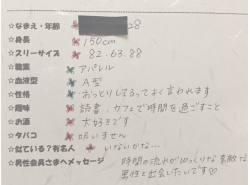 ☆なまえ・年齢 28
☆身長 150cm
☆スリーサイズ 82.63.88
☆職業 アパレル
☆血液型 A型
☆性格 おっとりしてるってよく言われます
☆趣味 読書・カフェで時間を過ごすこと
☆お酒 大好きです
☆タバコ 吸いません
☆似ている?有名人 いないかな…
☆男性会員さまへメッセージ 時間の流れがゆっくりな素敵な
男性と出会いたいです♡